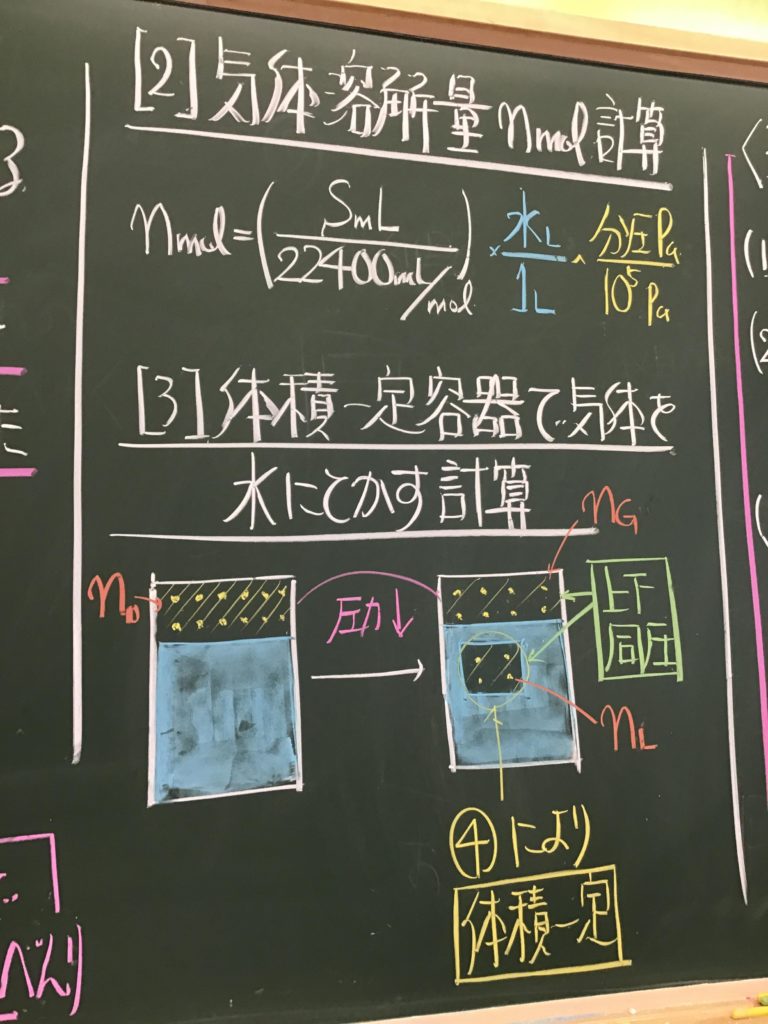 [2]気体溶解量 nmol 計算
nmol = (SmL / 22400mL/mol) × 水L / 1L × 分圧Pa / 10⁵Pa
[3]体積一定容器で気体を
水にとかす計算
n₀
圧力↓
nG
上下
同圧
nL
④により
体積一定
べんり